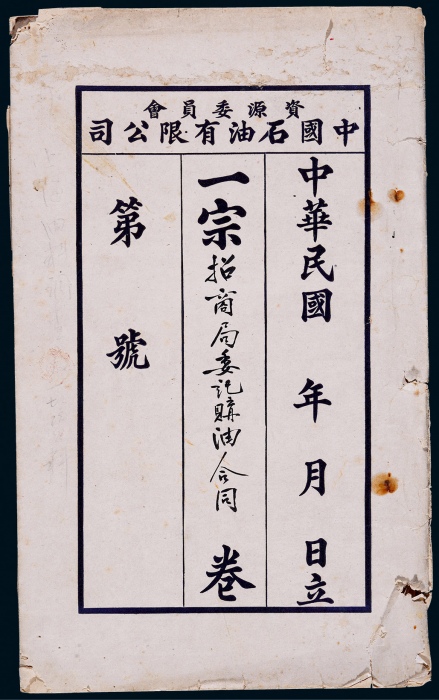 資源委員會
中國石油有限公司
中華民國 年 月 日立
一宗招商局委託購油合同 卷
第 號